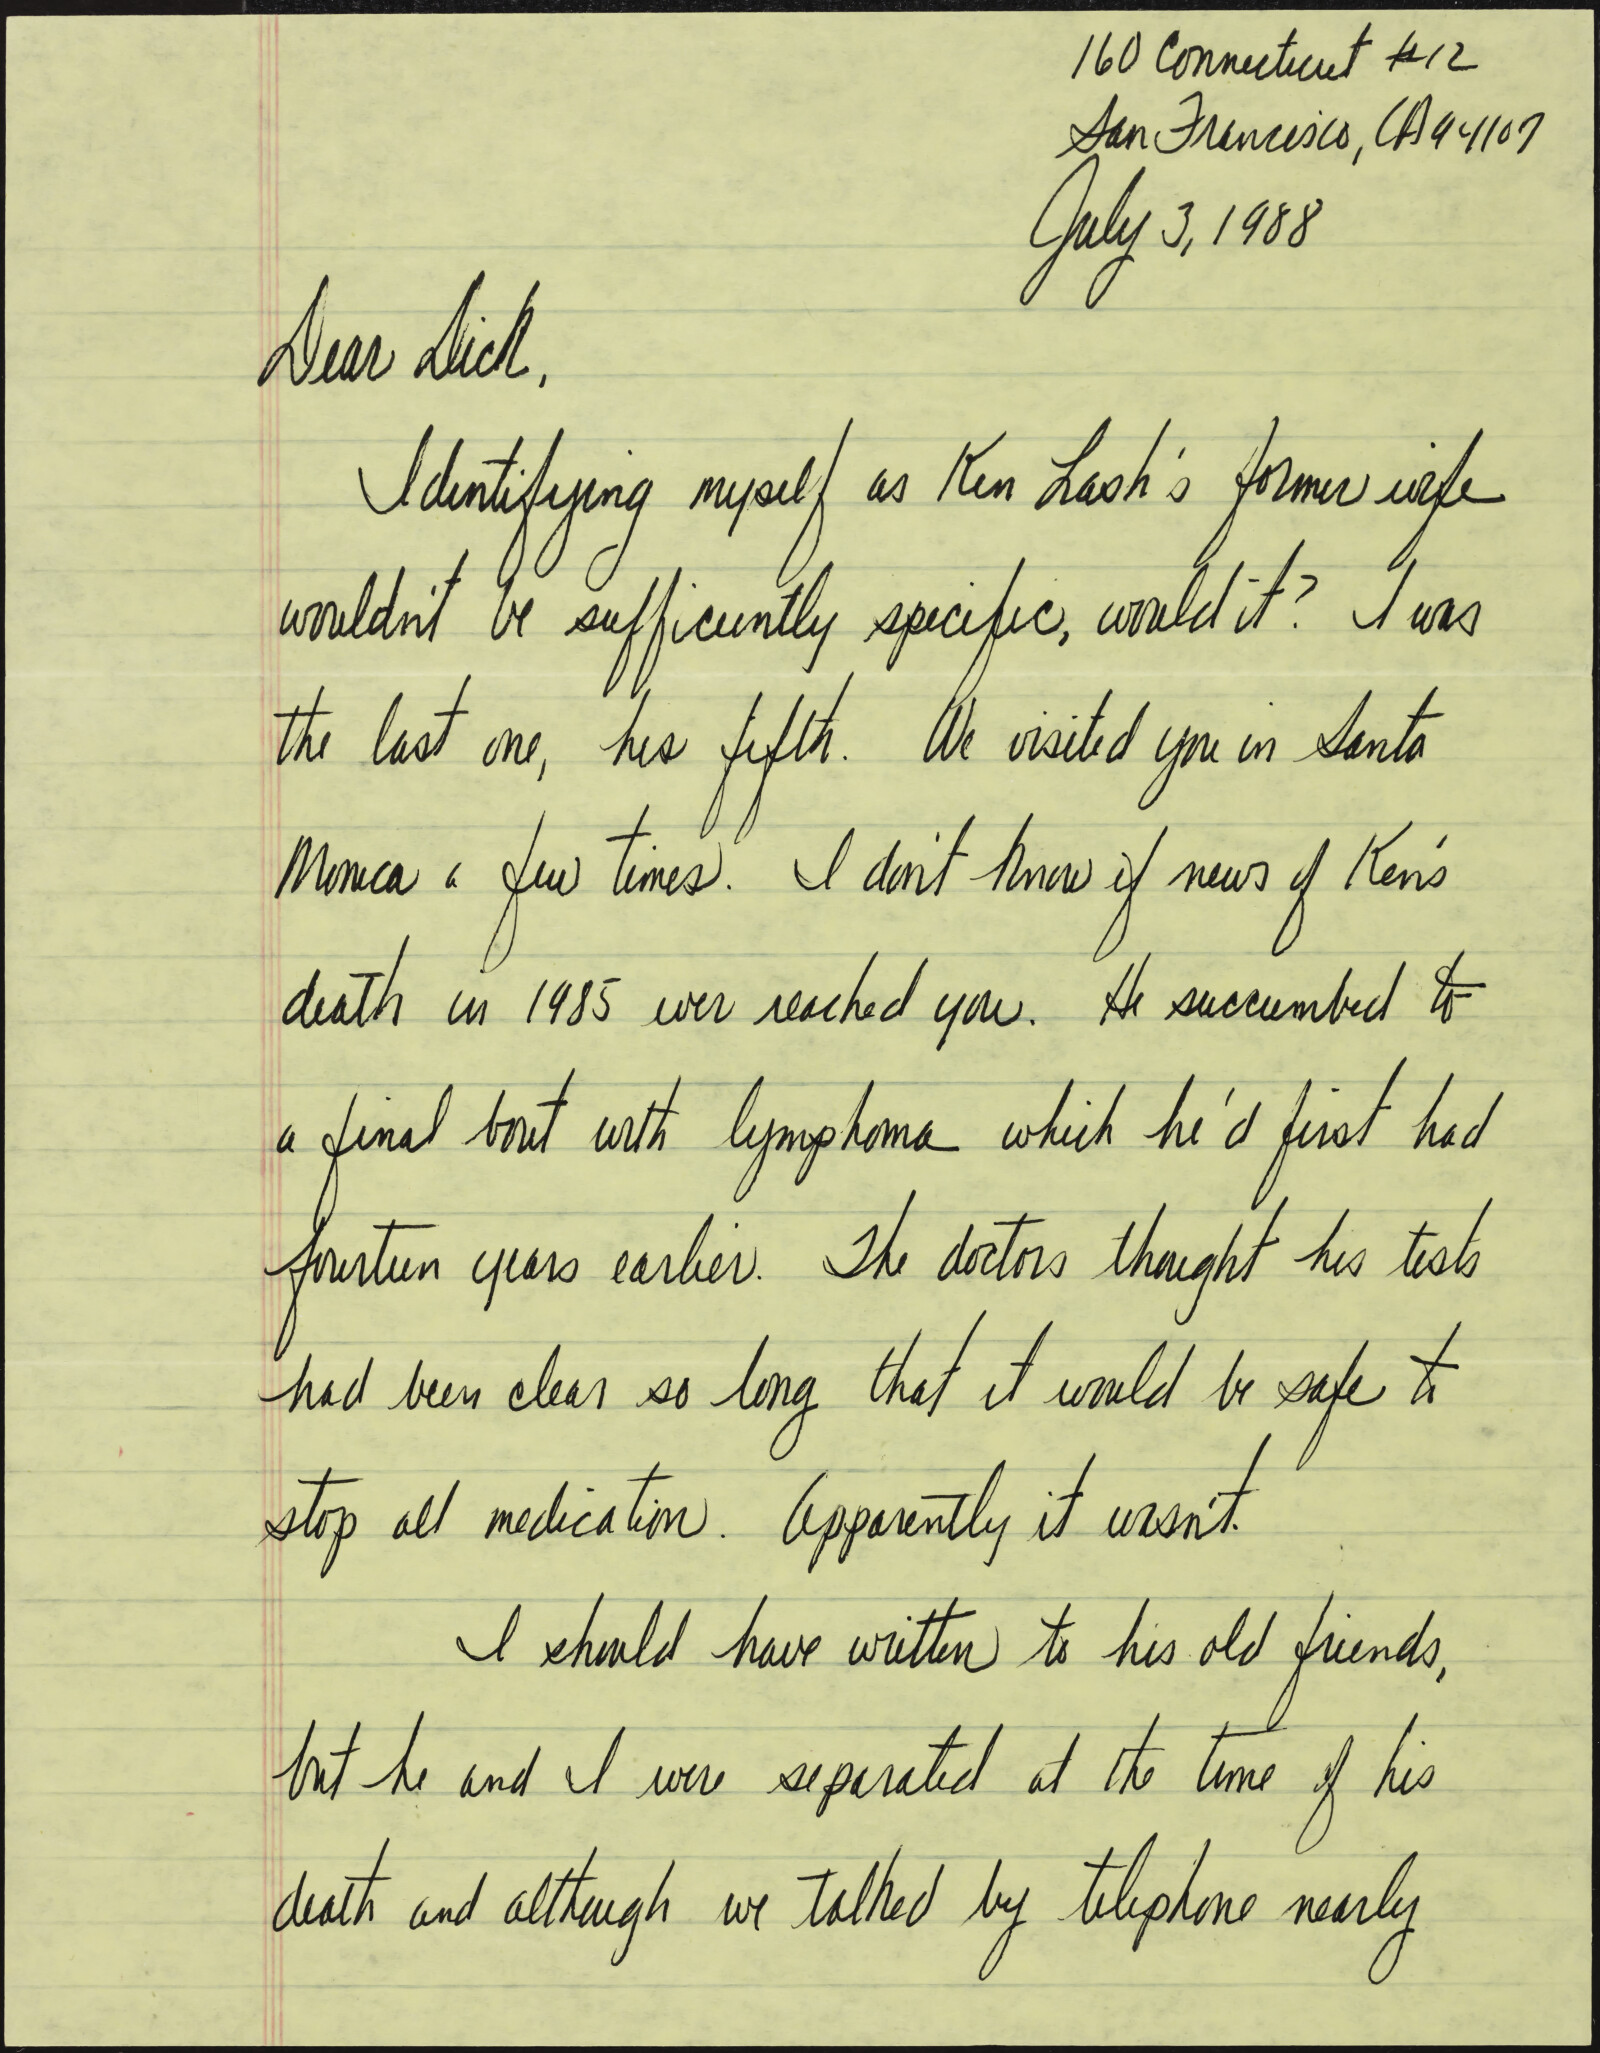 160 Connecticut #12
San Francisco, CA 94107
July 3, 1988
Dear Dick,
Identifying myself as Ken Lash's former wife
wouldn't be sufficiently specific, would it? I was
the last one, his fifth. We visited you in Santa
Monica a few times. I don't know if news of Ken's
death in 1985 ever reached you. He succumbed to
a final bout with lymphoma which he'd first had
fourteen years earlier. The doctors thought his tests
had been clear so long that it would be safe to
stop all medication. Apparently it wasn't.
I should have written to his old friends,
but he and I were separated at the time of his
death and although we talked by telephone nearly